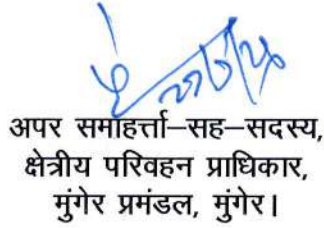 अपर समाहर्त्ता–सह–सदस्य,
क्षेत्रीय परिवहन प्राधिकार,
मुंगेर प्रमंडल, मुंगेर।